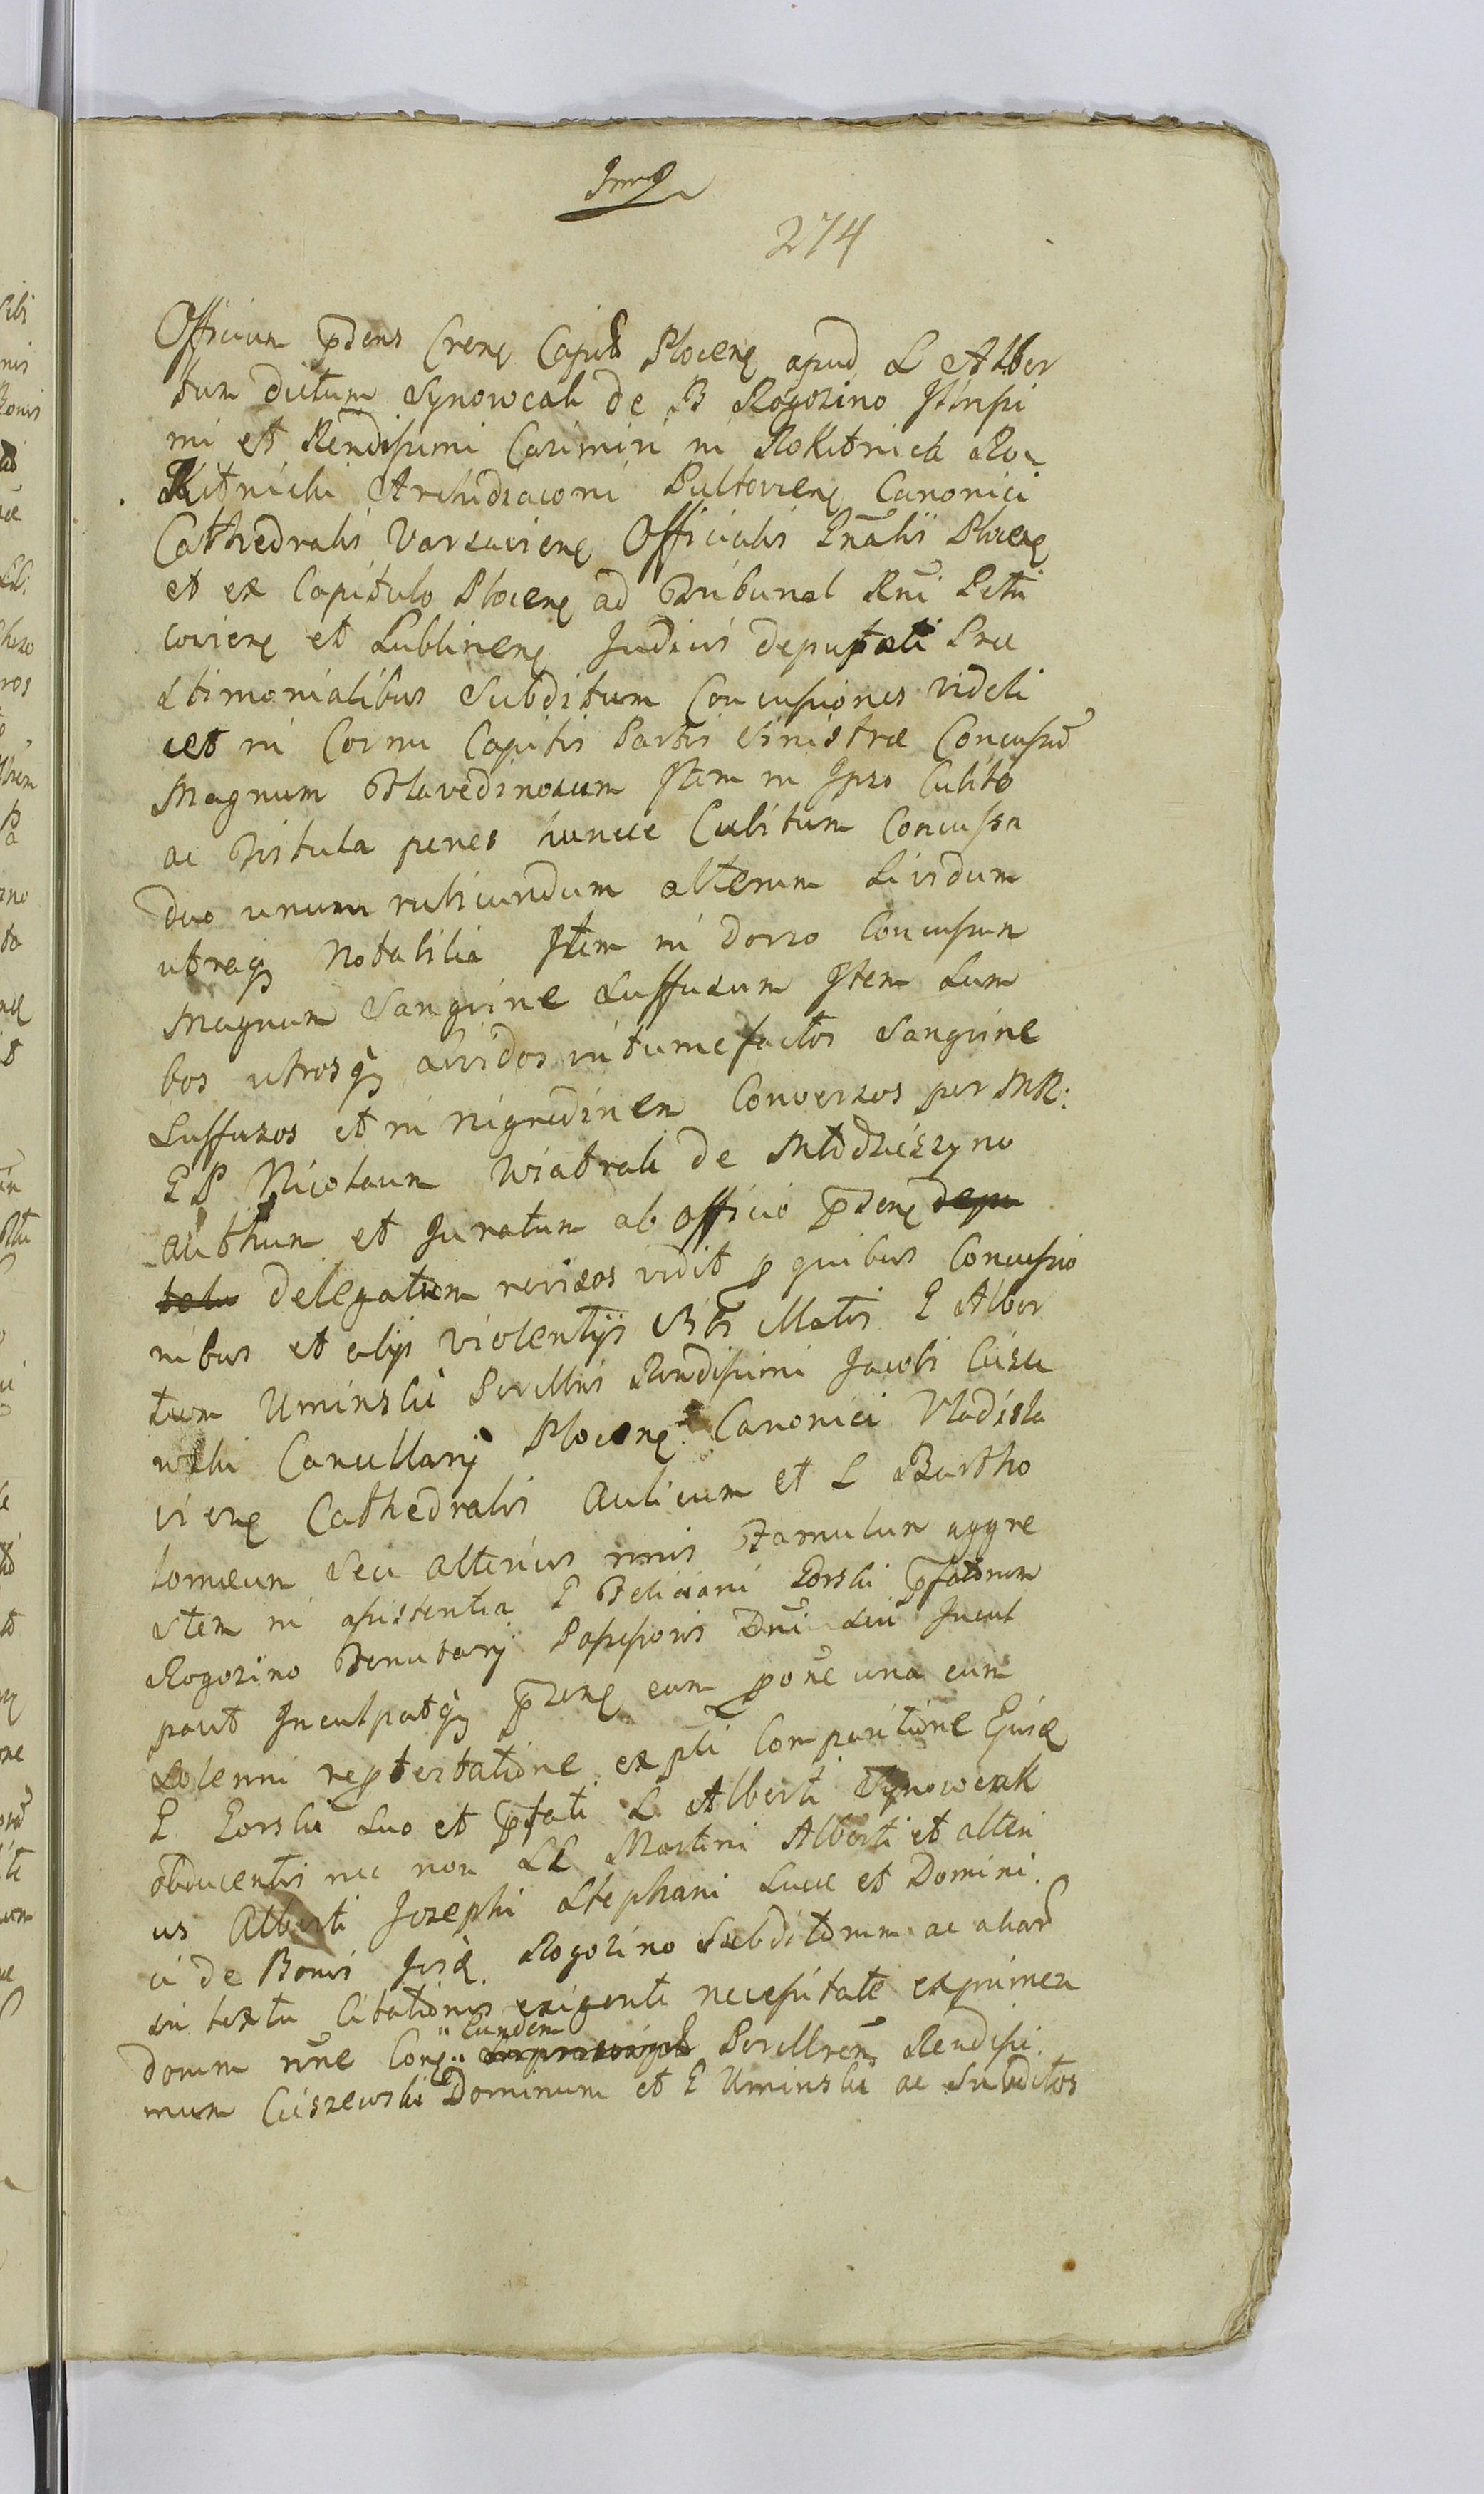 274
Officium p̃sens Crense Capitlē Plocense apud L Alber
tum dictum Synowcak de B Rogozino Illrissi
mi et Rendissimi Casimiri in Rokitnica Ro
kitnicki Archidiaconi Pultoviense Canonici
Cathedralis Varsaviense Officialis Gñalis Plocense
et ex Capitulo Plocense ad Tribunal Rni Petri
coviense et Lublinense Judicis deputati Prae
stimonialibus Subditum Concussiones videli
cet in Cornu Capitis Partis Sinistrae Concussū
Magnum Flavedinosum Item in Ipso Cubito
ac Fistula penes hunce Cubitum Concussa
duo unum rubicundum alterum Lividum
utraq Notabilia Item in dorso Concussum
Magnum Sanguine Suffusum Item Lum
bos utrosq lividos intumefactos Sanguine
Suffusos et in nigredinem Conversos per MR:
G P Nicolaum Wiatrak de Młodzieszyno
authum et Juratum ab officio p̃sens depu
tatu delegatum revisos vidit p quibus Concussio
nibus et alijs violentijs Sibi illatis G Alber
tum Uminski Perillris Rendissimi Jacobi Cisze
wski Cancellarij Plocense Canonici Vladisla
viense Cathedralis Aulicum et L Bartho
lomeum Seu alterius nnis Famulum aggre
stem in assistentia G Feliciani Gorski p̃fatorum
Rogozino Tenutarij Possessoris Dni Sui Incul
pavit Inculpatq p̃sens cum pone una cum
Solenni reptestatione ex pti Comparitione Ejusd
G Gorski Suo et p̃fati L Alberti Synowcak
obducentis nec non LL Martini Alberti et alteri
us Alberti Josephi Stephani Lucae et Domini
ci de Bonis Iisd. Rogozino Subditorum ac aliarū
in textu Citationis exigente necessitate exprimen
dorum nne Con Eundem Perillrem Rendissi
mum Ciszewski Dominum et G Uminski ac Subditos